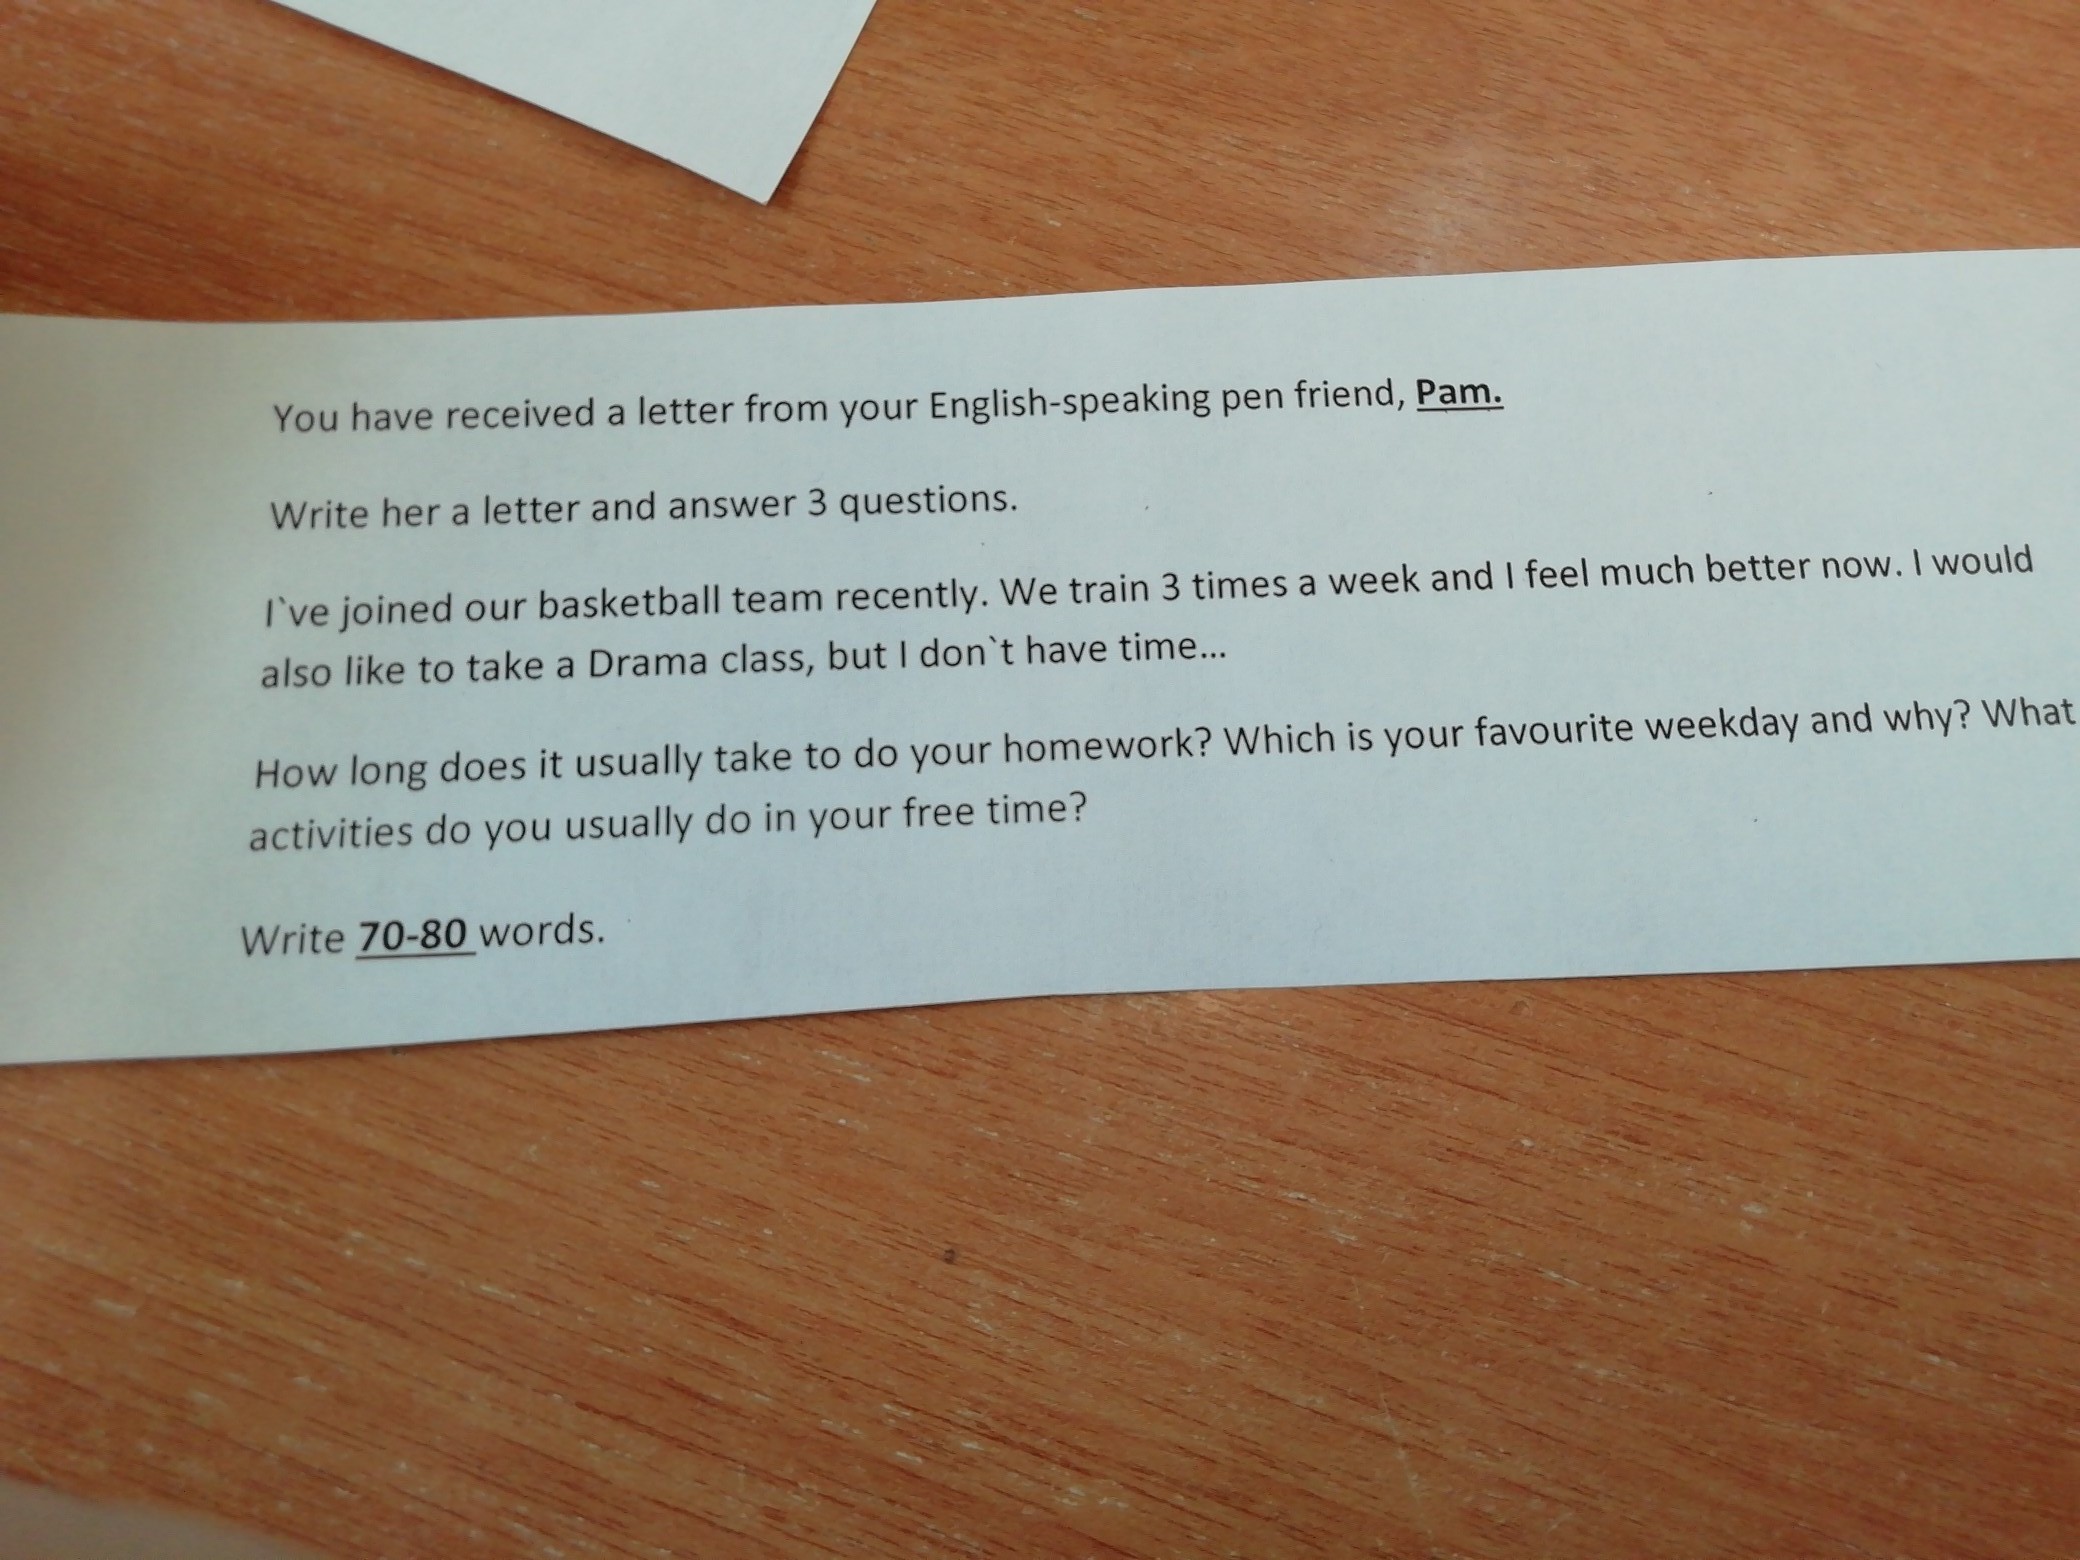 You have received a letter from your English-speaking pen friend, Pam.
Write her a letter and answer 3 questions.
I`ve joined our basketball team recently. We train 3 times a week and I feel much better now. I would
also like to take a Drama class, but I don`t have time...
How long does it usually take to do your homework? Which is your favourite weekday and why? What
activities do you usually do in your free time?
Write 70-80 words.